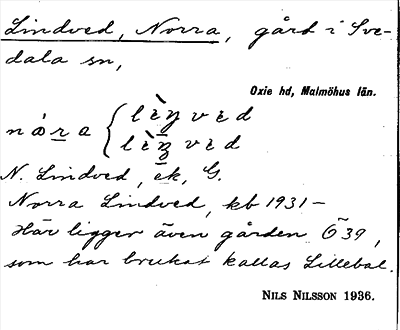 Lindved, Norra, gård i Sve-
dala sn,
Oxie hd, Malmöhus län.
nára { lèŋved
lèṉved
N. Lindved, ek, G.
Norra Lindved, kb 1931–
Här ligger även gården Ö39,
som har brukat kallas Lillebal.
NILS NILSSON 1936.